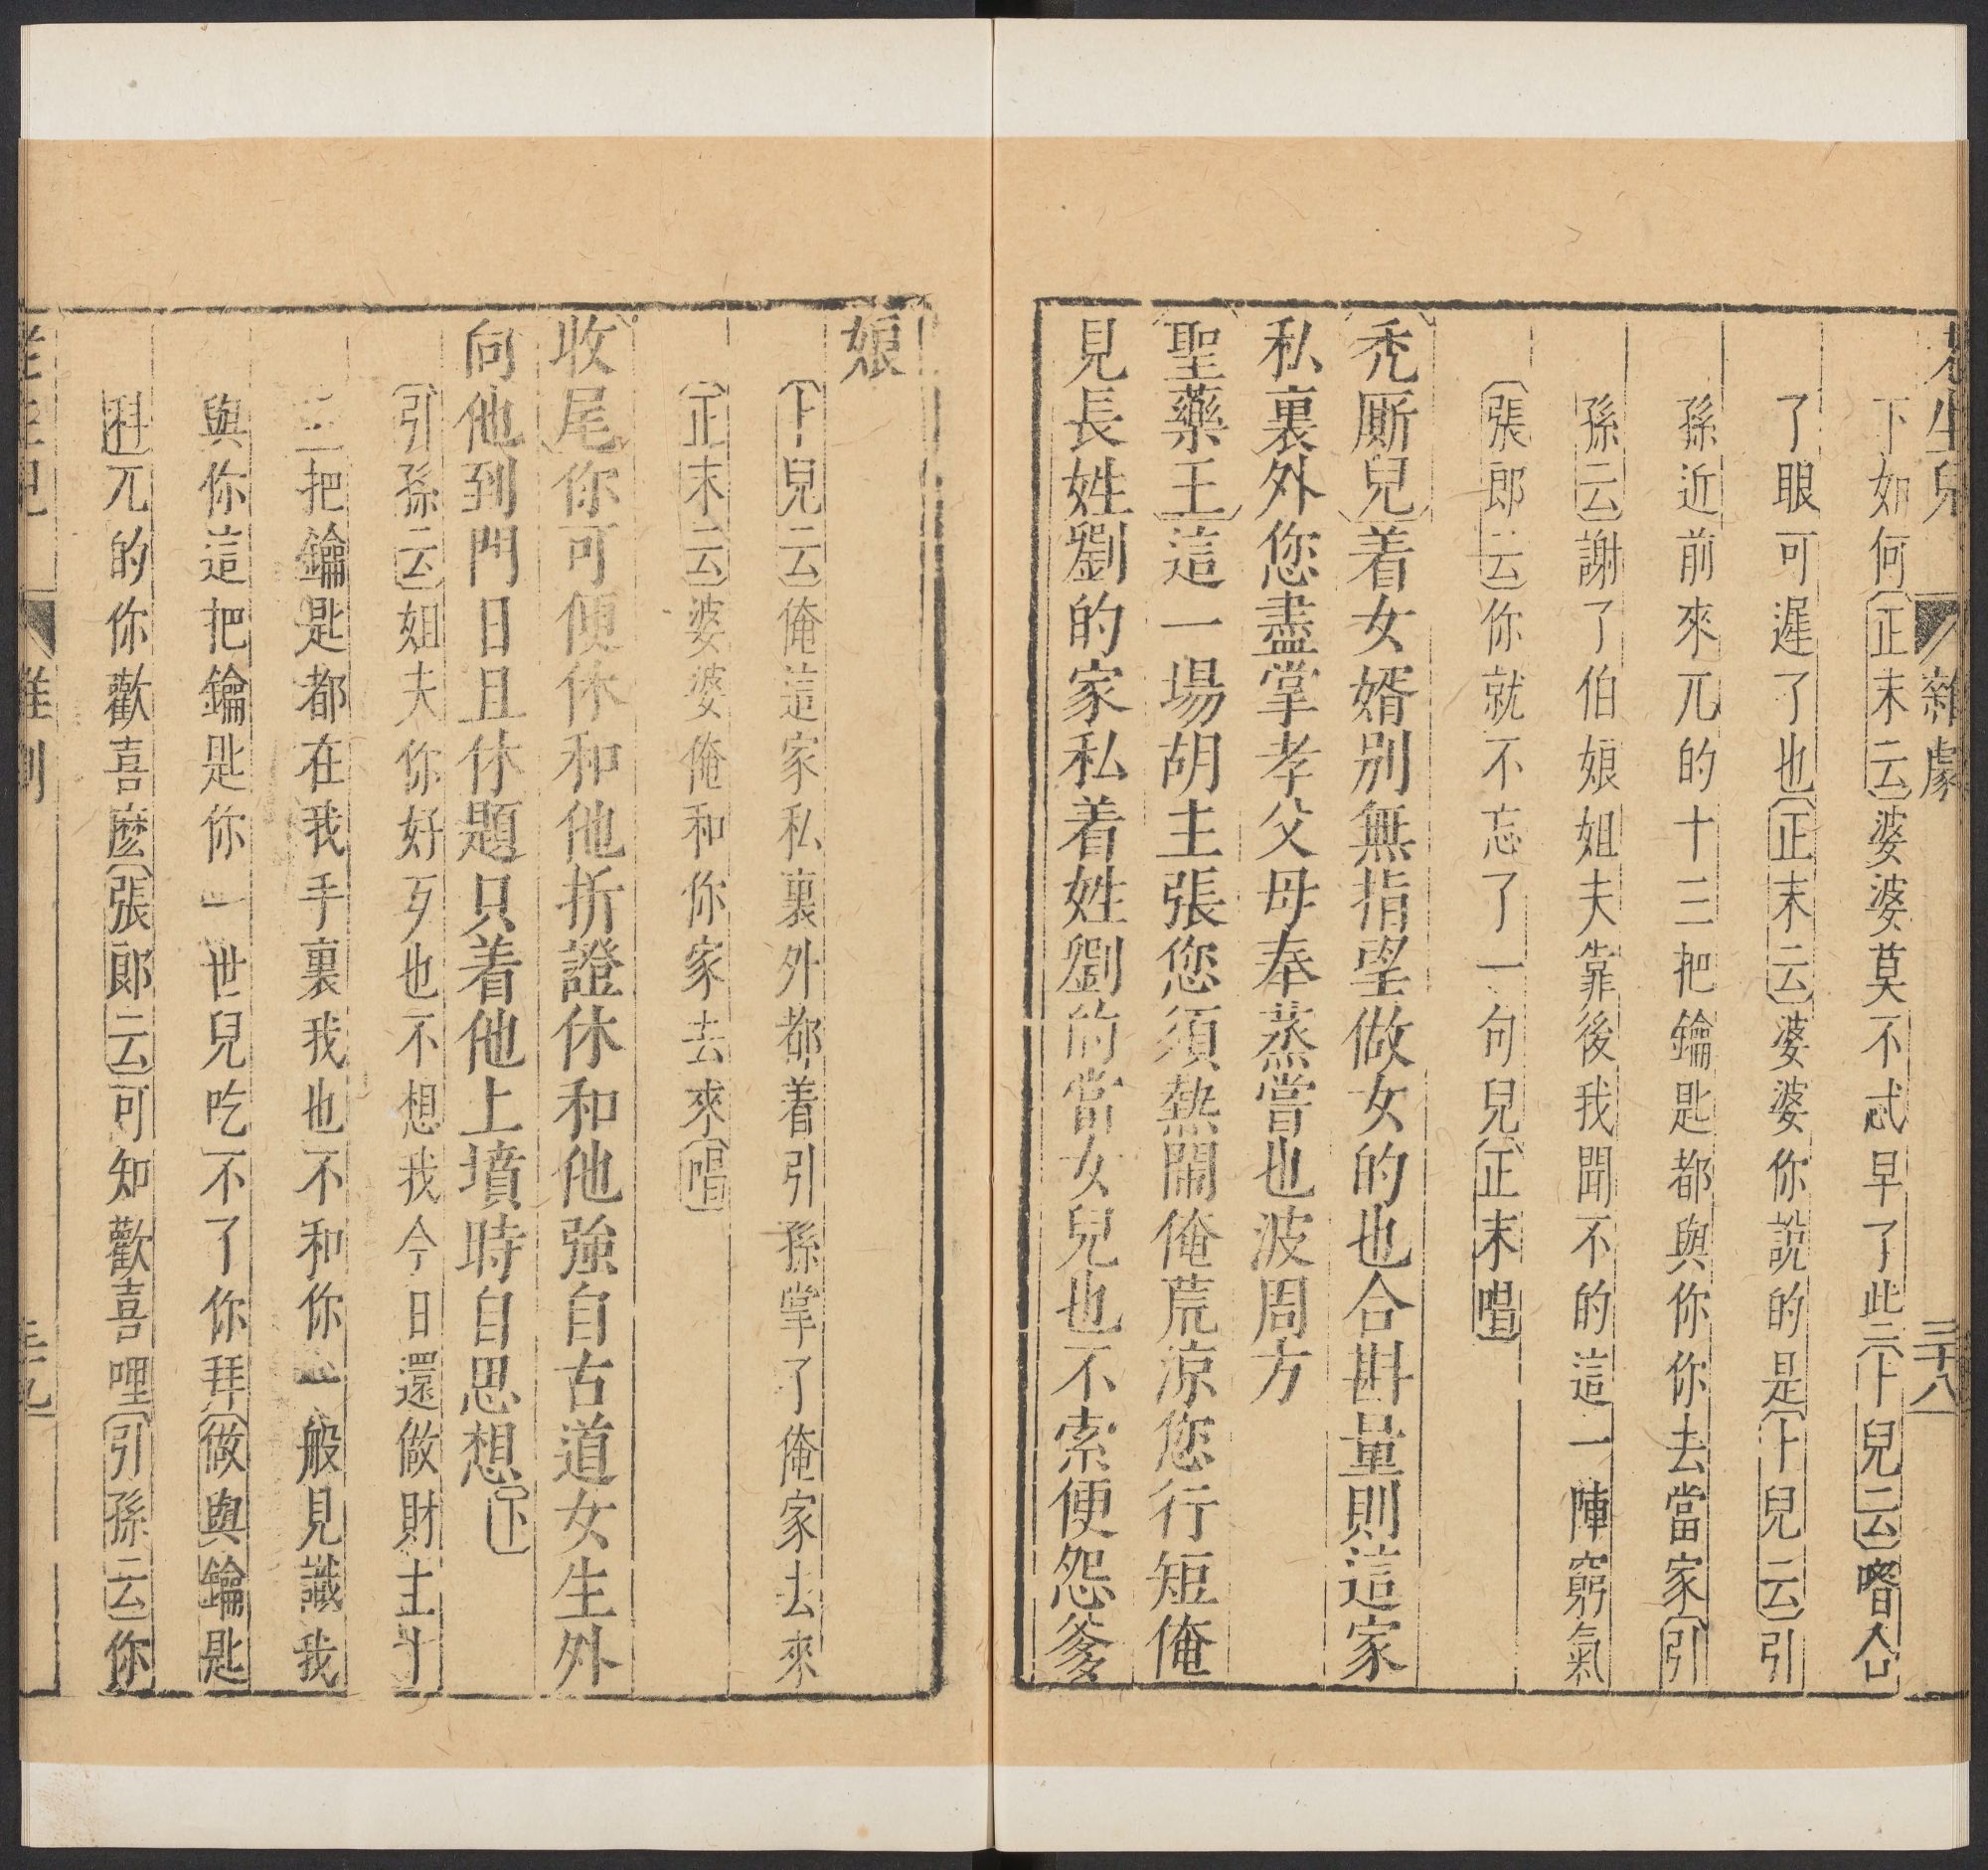 老生兒 雜劇 三十八
下如何(正末云)婆婆莫不忒早了些(卜兒云)喒合
了眼可遲了也(正末云)婆婆你説的是(卜兒云)引
孫近前來兀的十三把鑰匙都與你你去當家(引
孫云)謝了伯娘姐夫靠後我聞不的這一陣窮氣
(張郎云)你就不忘了一句兒(正末唱)
(禿厮兒)着女婿别無指望做女的也合斟量則這家
私裏外您盡掌孝父母奉蒸嘗也波周方
(聖藥王)這一場胡主張您須熱鬧俺荒凉您行短俺
見長姓劉的家私着姓劉的當女兒也不索便怨爹
娘
(卜兒云)俺這家私裏外都着引孫掌了俺家去來
(正末云)婆婆俺和你家去來(唱)
(收尾)你可便休和他折證休和他強自古道女生外
向他到門日且休題只着他上墳時自思想(下)
(引孫云)姐夫你好歹也不想我今日還做財主十
三把鑰匙都在我手裏我也不和你一般見識我
與你這把鑰匙你一世兒吃不了你拜(做與鑰匙
科)兀的你歡喜麽(張郎云)可知歡喜哩(引孫云)你